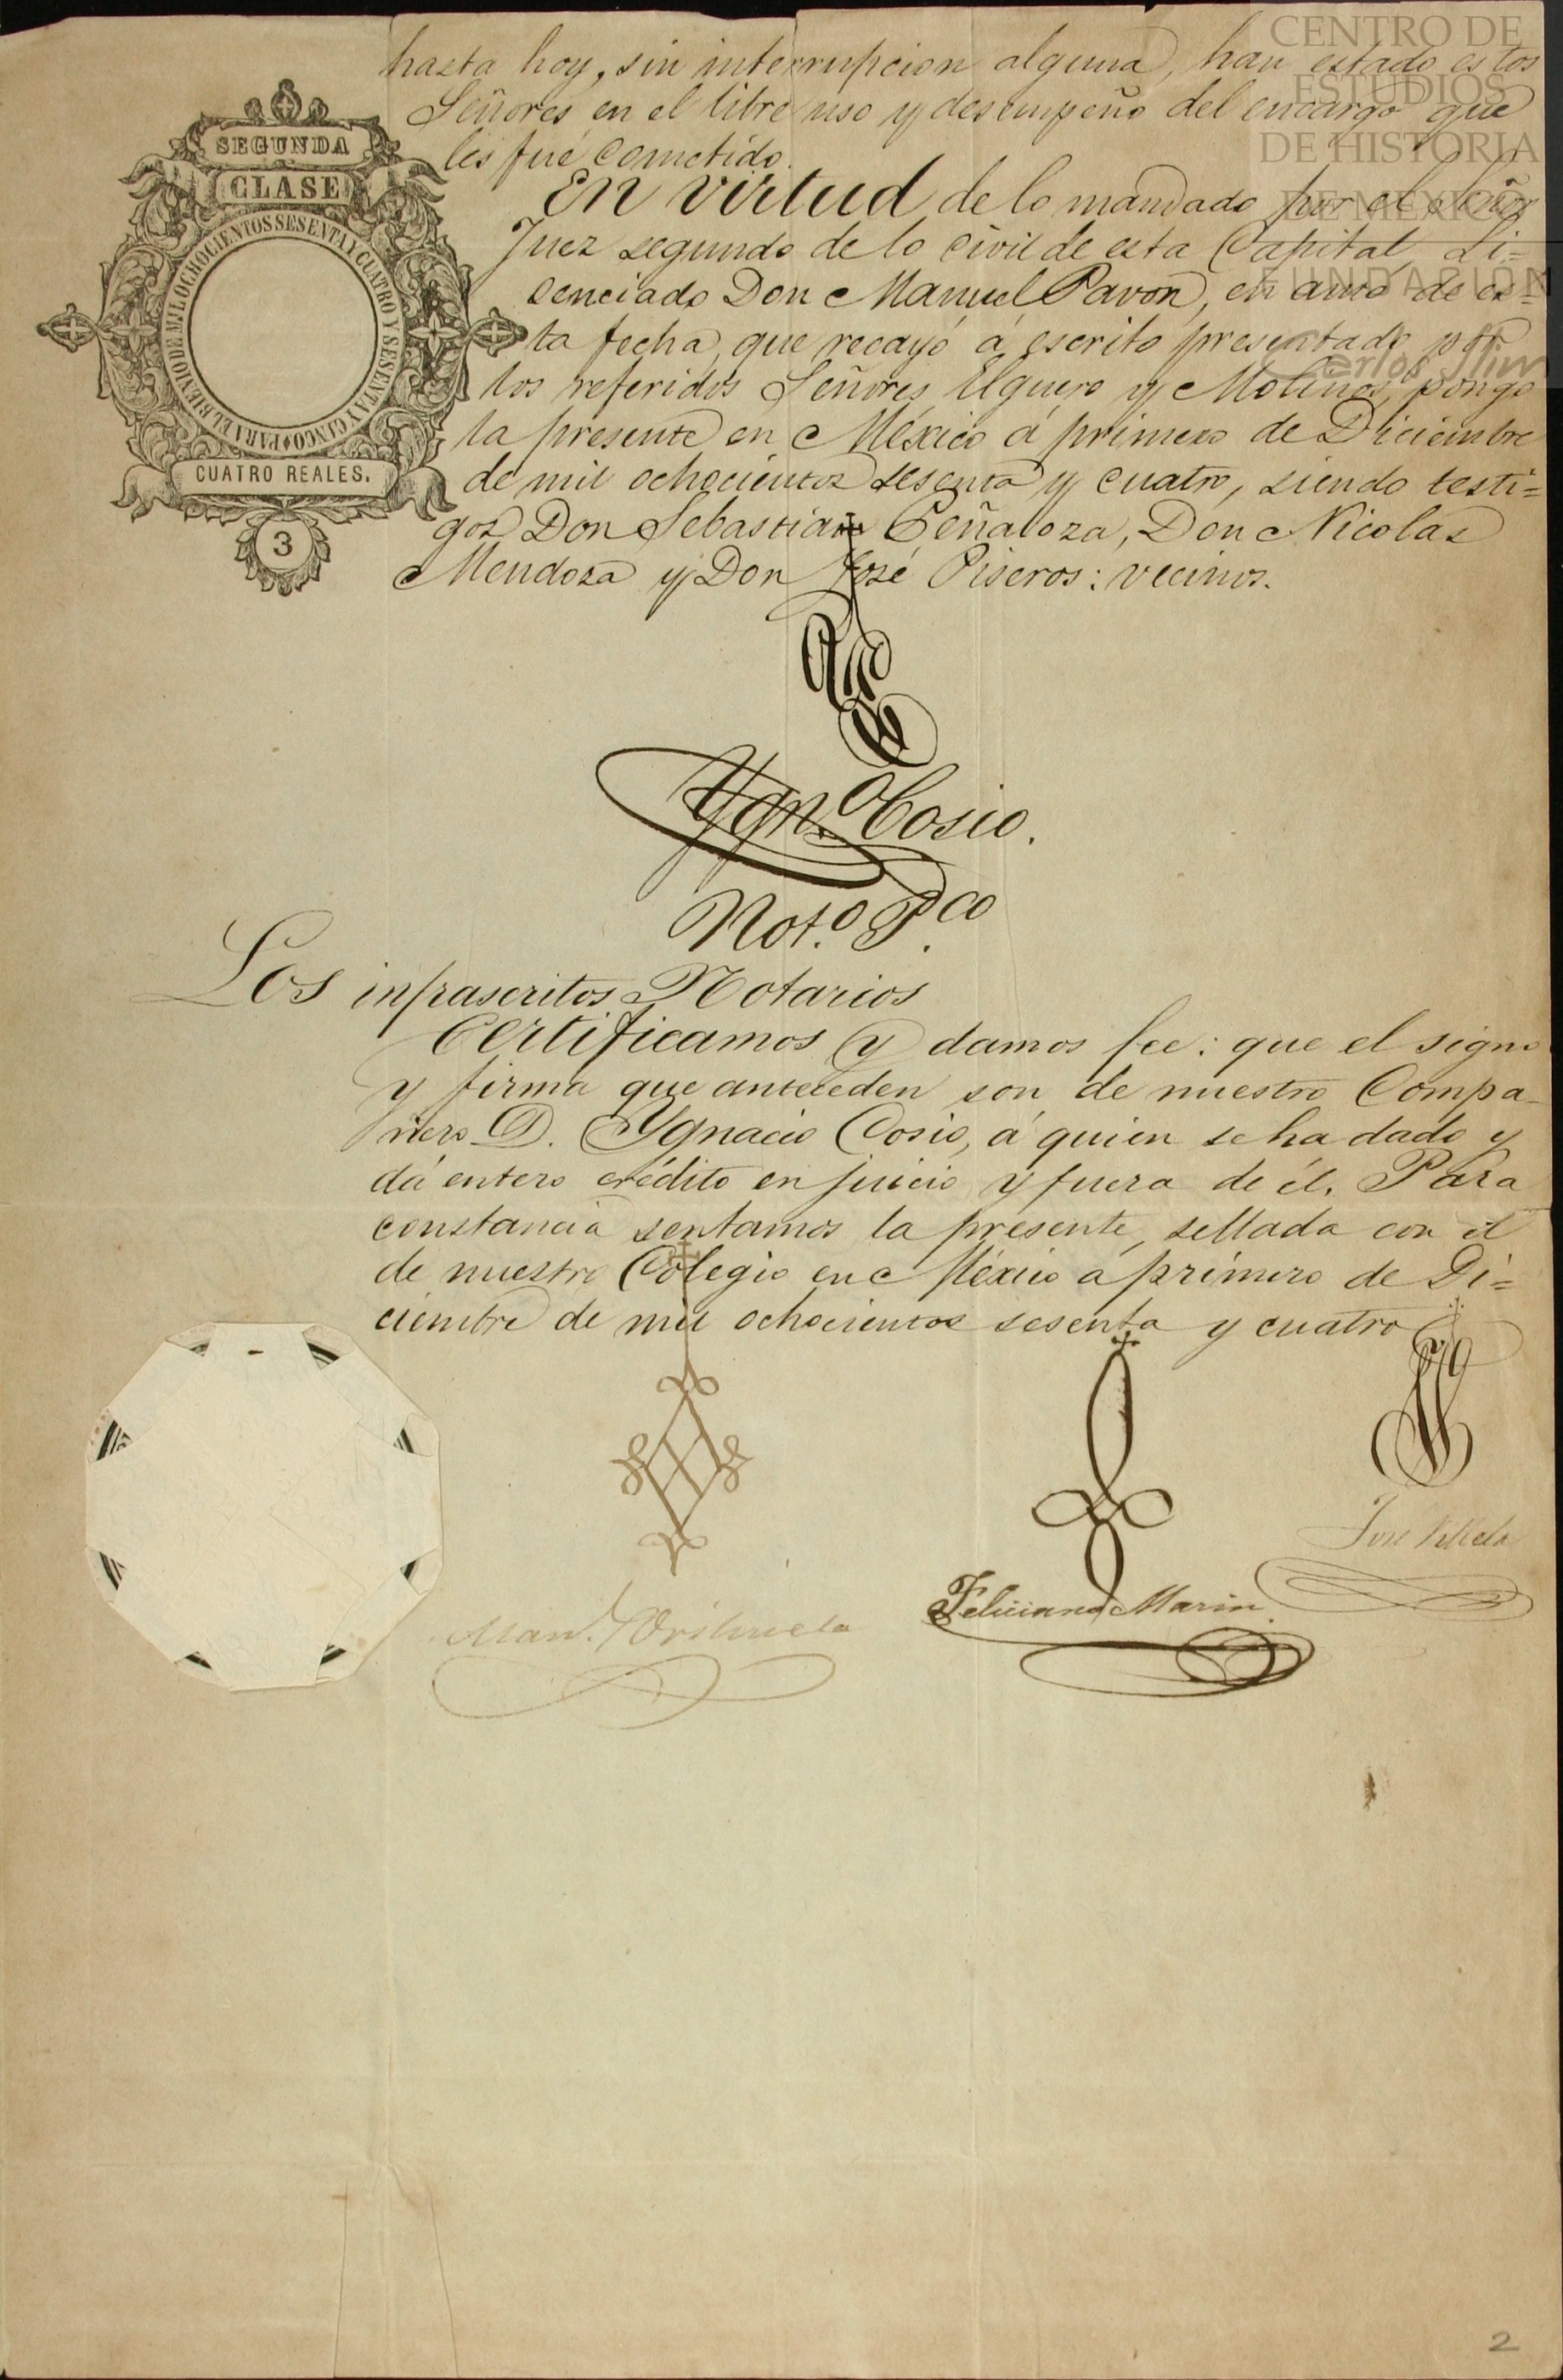 CENTRO DE
ESTUDIOS
DE HISTORIA
DE MEXICO
FUNDACIÓN
Carlos Slim
SEGUNDA
CLASE
PARA EL BIENIO DE MIL OCHOCIENTOS SESENTA Y CUATRO Y SESENTA Y CINCO
CUATRO REALES.
3
hasta hoy, sin interrupcion alguna, han estado estos
Señores en el libre uso y desempeño del encargo que
les fué cometido.
En virtud de lo mandado por el Señor
Juez segundo de lo civil de esta Capital, Li=
cenciado Don Manuel Pavon, en auto de es=
ta fecha, que recayó á escrito presentado por
los referidos Señores Elguero y Molinos, pongo
la presente en México á primero de Diciembre
de mil ochocientos sesenta y cuatro, siendo testi=
gos Don Sebastian Peñaloza, Don Nicolas
Mendoza y Don José Piseros: vecinos.
Ygn.o Cosio.
Not.o P.co
Los infrascritos Notarios
Certificamos y damos fee: que el signo
y firma que anteceden son de nuestro Compa-
ñero D. Ygnacio Cosio, á quien se ha dado y
dá entero crédito en juicio y fuera de él. Para
constancia sentamos la presente, sellada con el
de nuestro Colegio en México á primero de Di=
ciembre de mil ochocientos sesenta y cuatro
Man. Orihuela
Feliciano Marin
José Villela
2